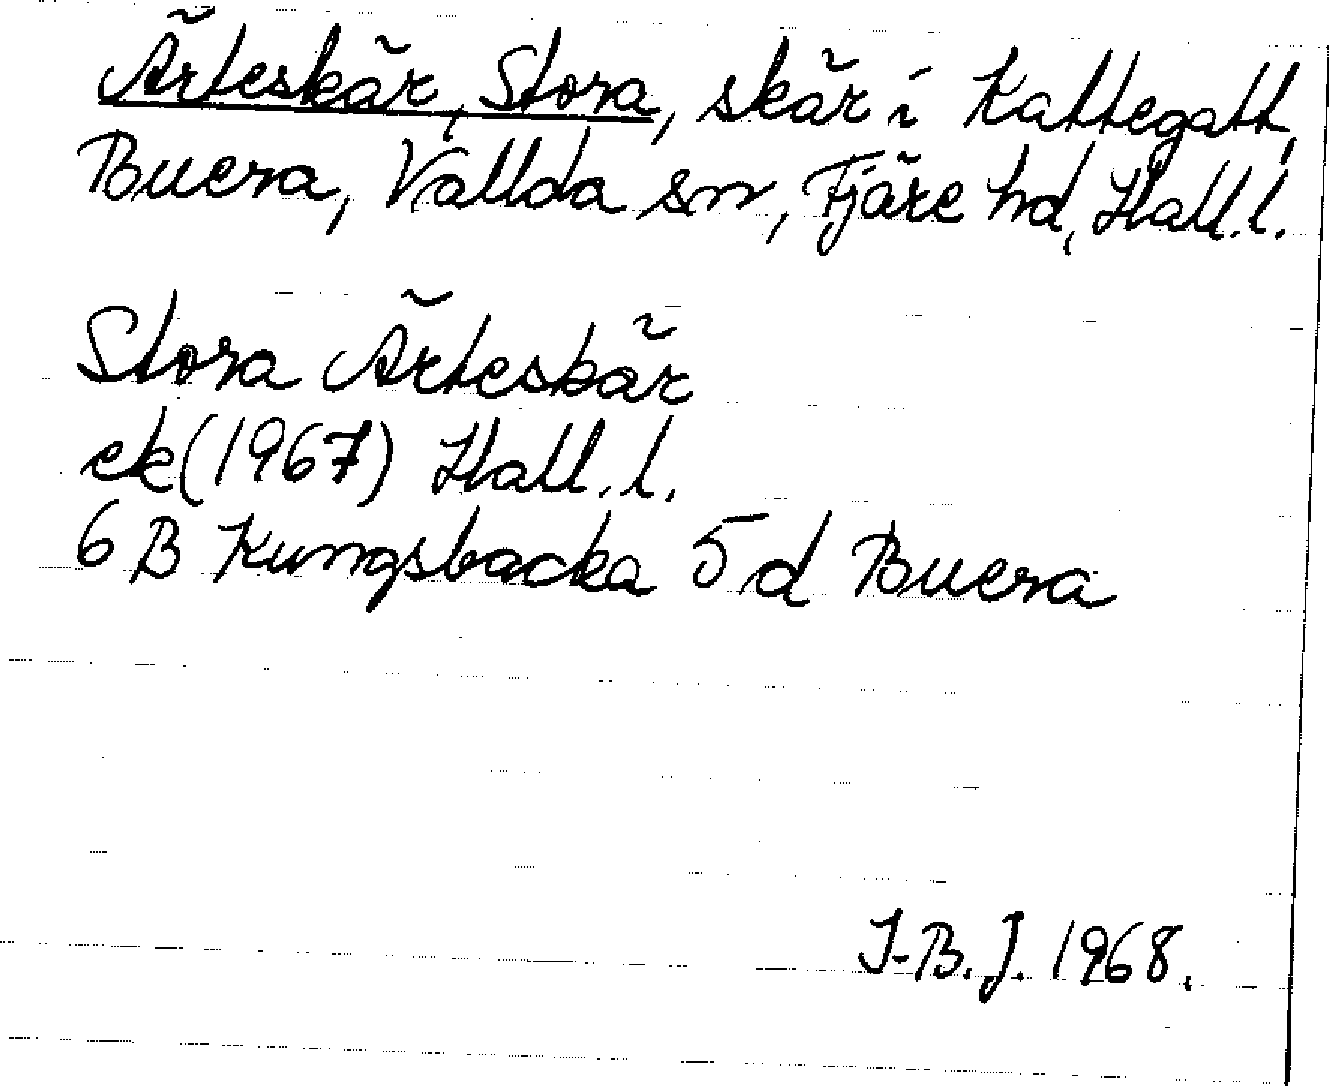 Ärteskär, Stora, skär i Kattegatt,
Buera, Vallda sn, Fjäre hd, Hall.l.
Stora Ärteskär
ek(1967) Hall.l.
6 B Kungsbacka 5 d Buera
I-B.J. 1968.